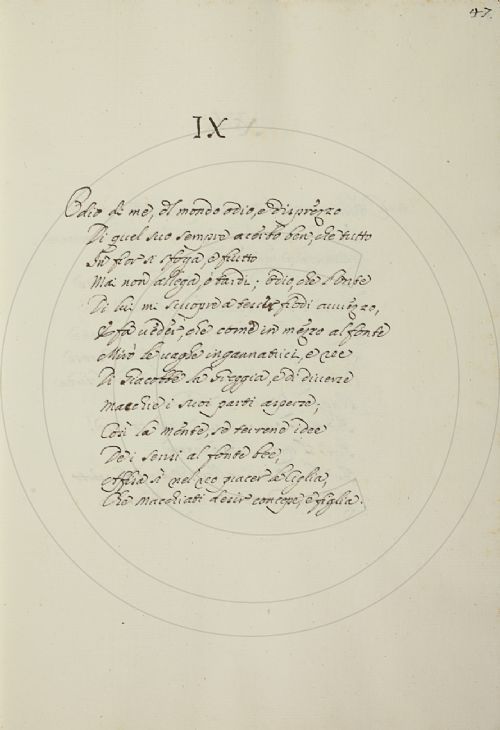 47.
IX
Odio di me, del mondo odio, e disprezzo
Di quel suo sempre acerbo ben, che tutto
In fior si sfoga, e frutto
Ma non allega, o tardi; odio, che
Di lui mi scuopre a tergo i fiedi avvezzo,
E fa veder, che come in mezzo al fonte
Mirò le verghe ingannatrici, e ree
Di Giacobbe la Greggia, e di diverse
Macchie i suoi parti asperse;
Così la mente, se terrene idee
De i sensi al fonte bee,
Affisa sì nel reo piacer le ciglia,
Che macchiati desir concepe, e figlia.